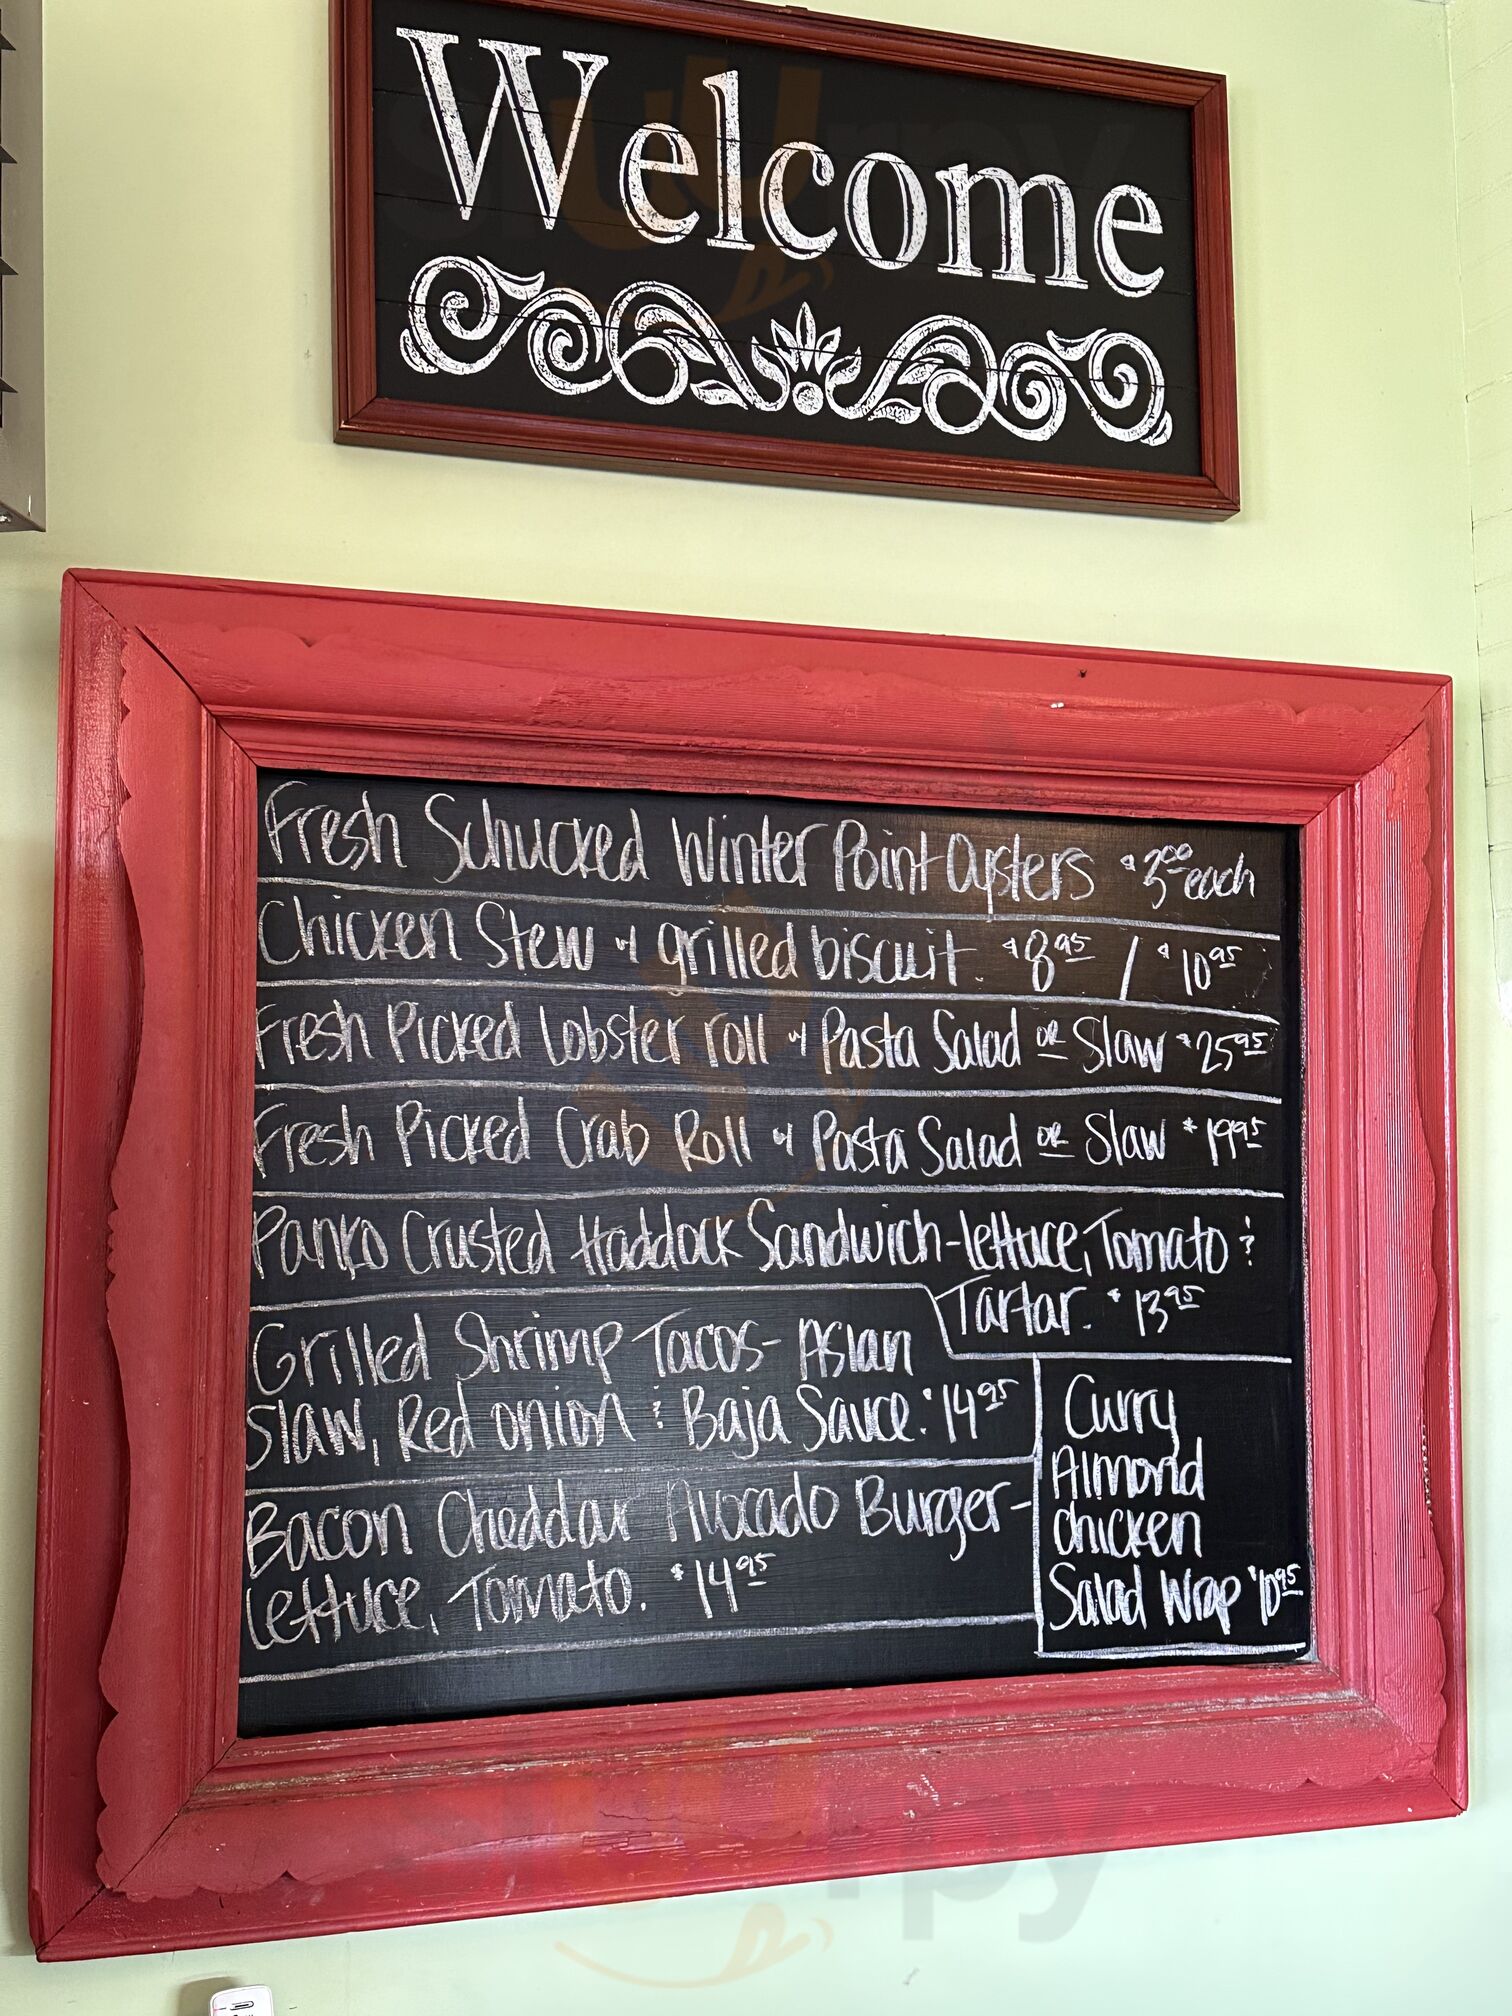 Welcome
Fresh Schucked Winter Point Oysters $3.00 each
Chicken Stew w/ grilled biscuit. $8.95 / $10.95
Fresh Picked Lobster roll w/ Pasta Salad OR Slaw $25.95
Fresh Picked Crab Roll w/ Pasta Salad OR Slaw $19.95
Panko Crusted Haddock Sandwich - lettuce, Tomato &
Tartar. $13.95
Grilled Shrimp Tacos - Asian
Slaw, Red onion & Baja Sauce. $14.95
Bacon Cheddar Avocado Burger -
lettuce, Tomato. $14.95
Curry
Almond
chicken
Salad Wrap $10.95